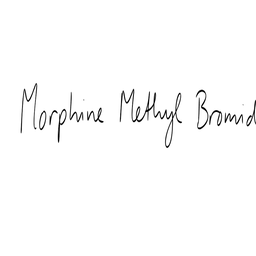 Morphine Methyl Bromid